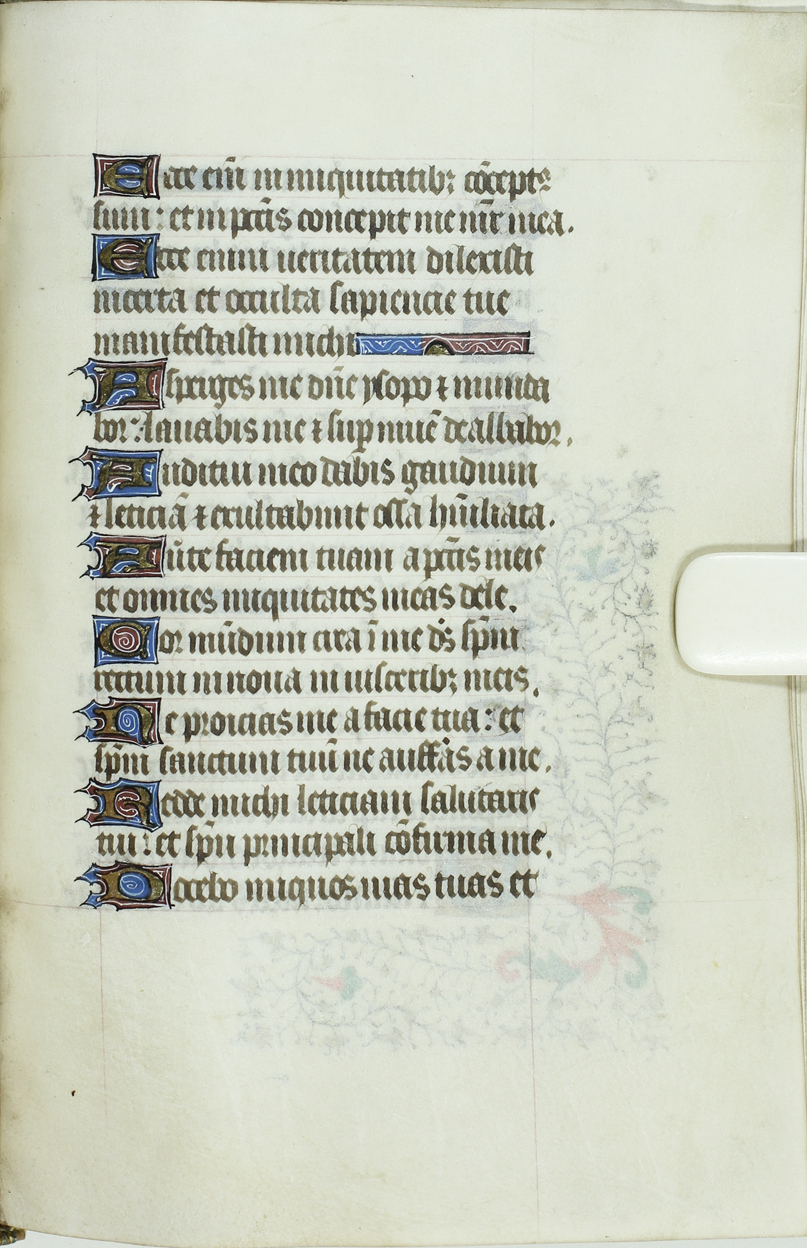 Ecce em̄ in iniquitatibꝫ cōcept9
sum : et in pctīs concepit me mr̄ mea.
Ecce enim ueritatem dilexisti
incerta et occulta sapiencie tue
manifestasti michi
Asperges me dn̄e ysopo ⁊ munda
bor : lauabis me ⁊ sup niuē dealbabor.
Auditui meo dabis gaudium
⁊ leticiā ⁊ exultabunt ossa hūiliata.
Auerte faciem tuam a pctīs meis
et omnes iniquitates meas dele.
Cor mūdum crea ī me ds̄ spm̄
rectum innoua in uisceribꝫ meis.
Ne proicias me a facie tua : et
spm̄ sanctum tuū ne auferas a me.
Redde michi leticiam salutaris
tui : et spū principali cōfirma me.
Docebo iniquos uias tuas et